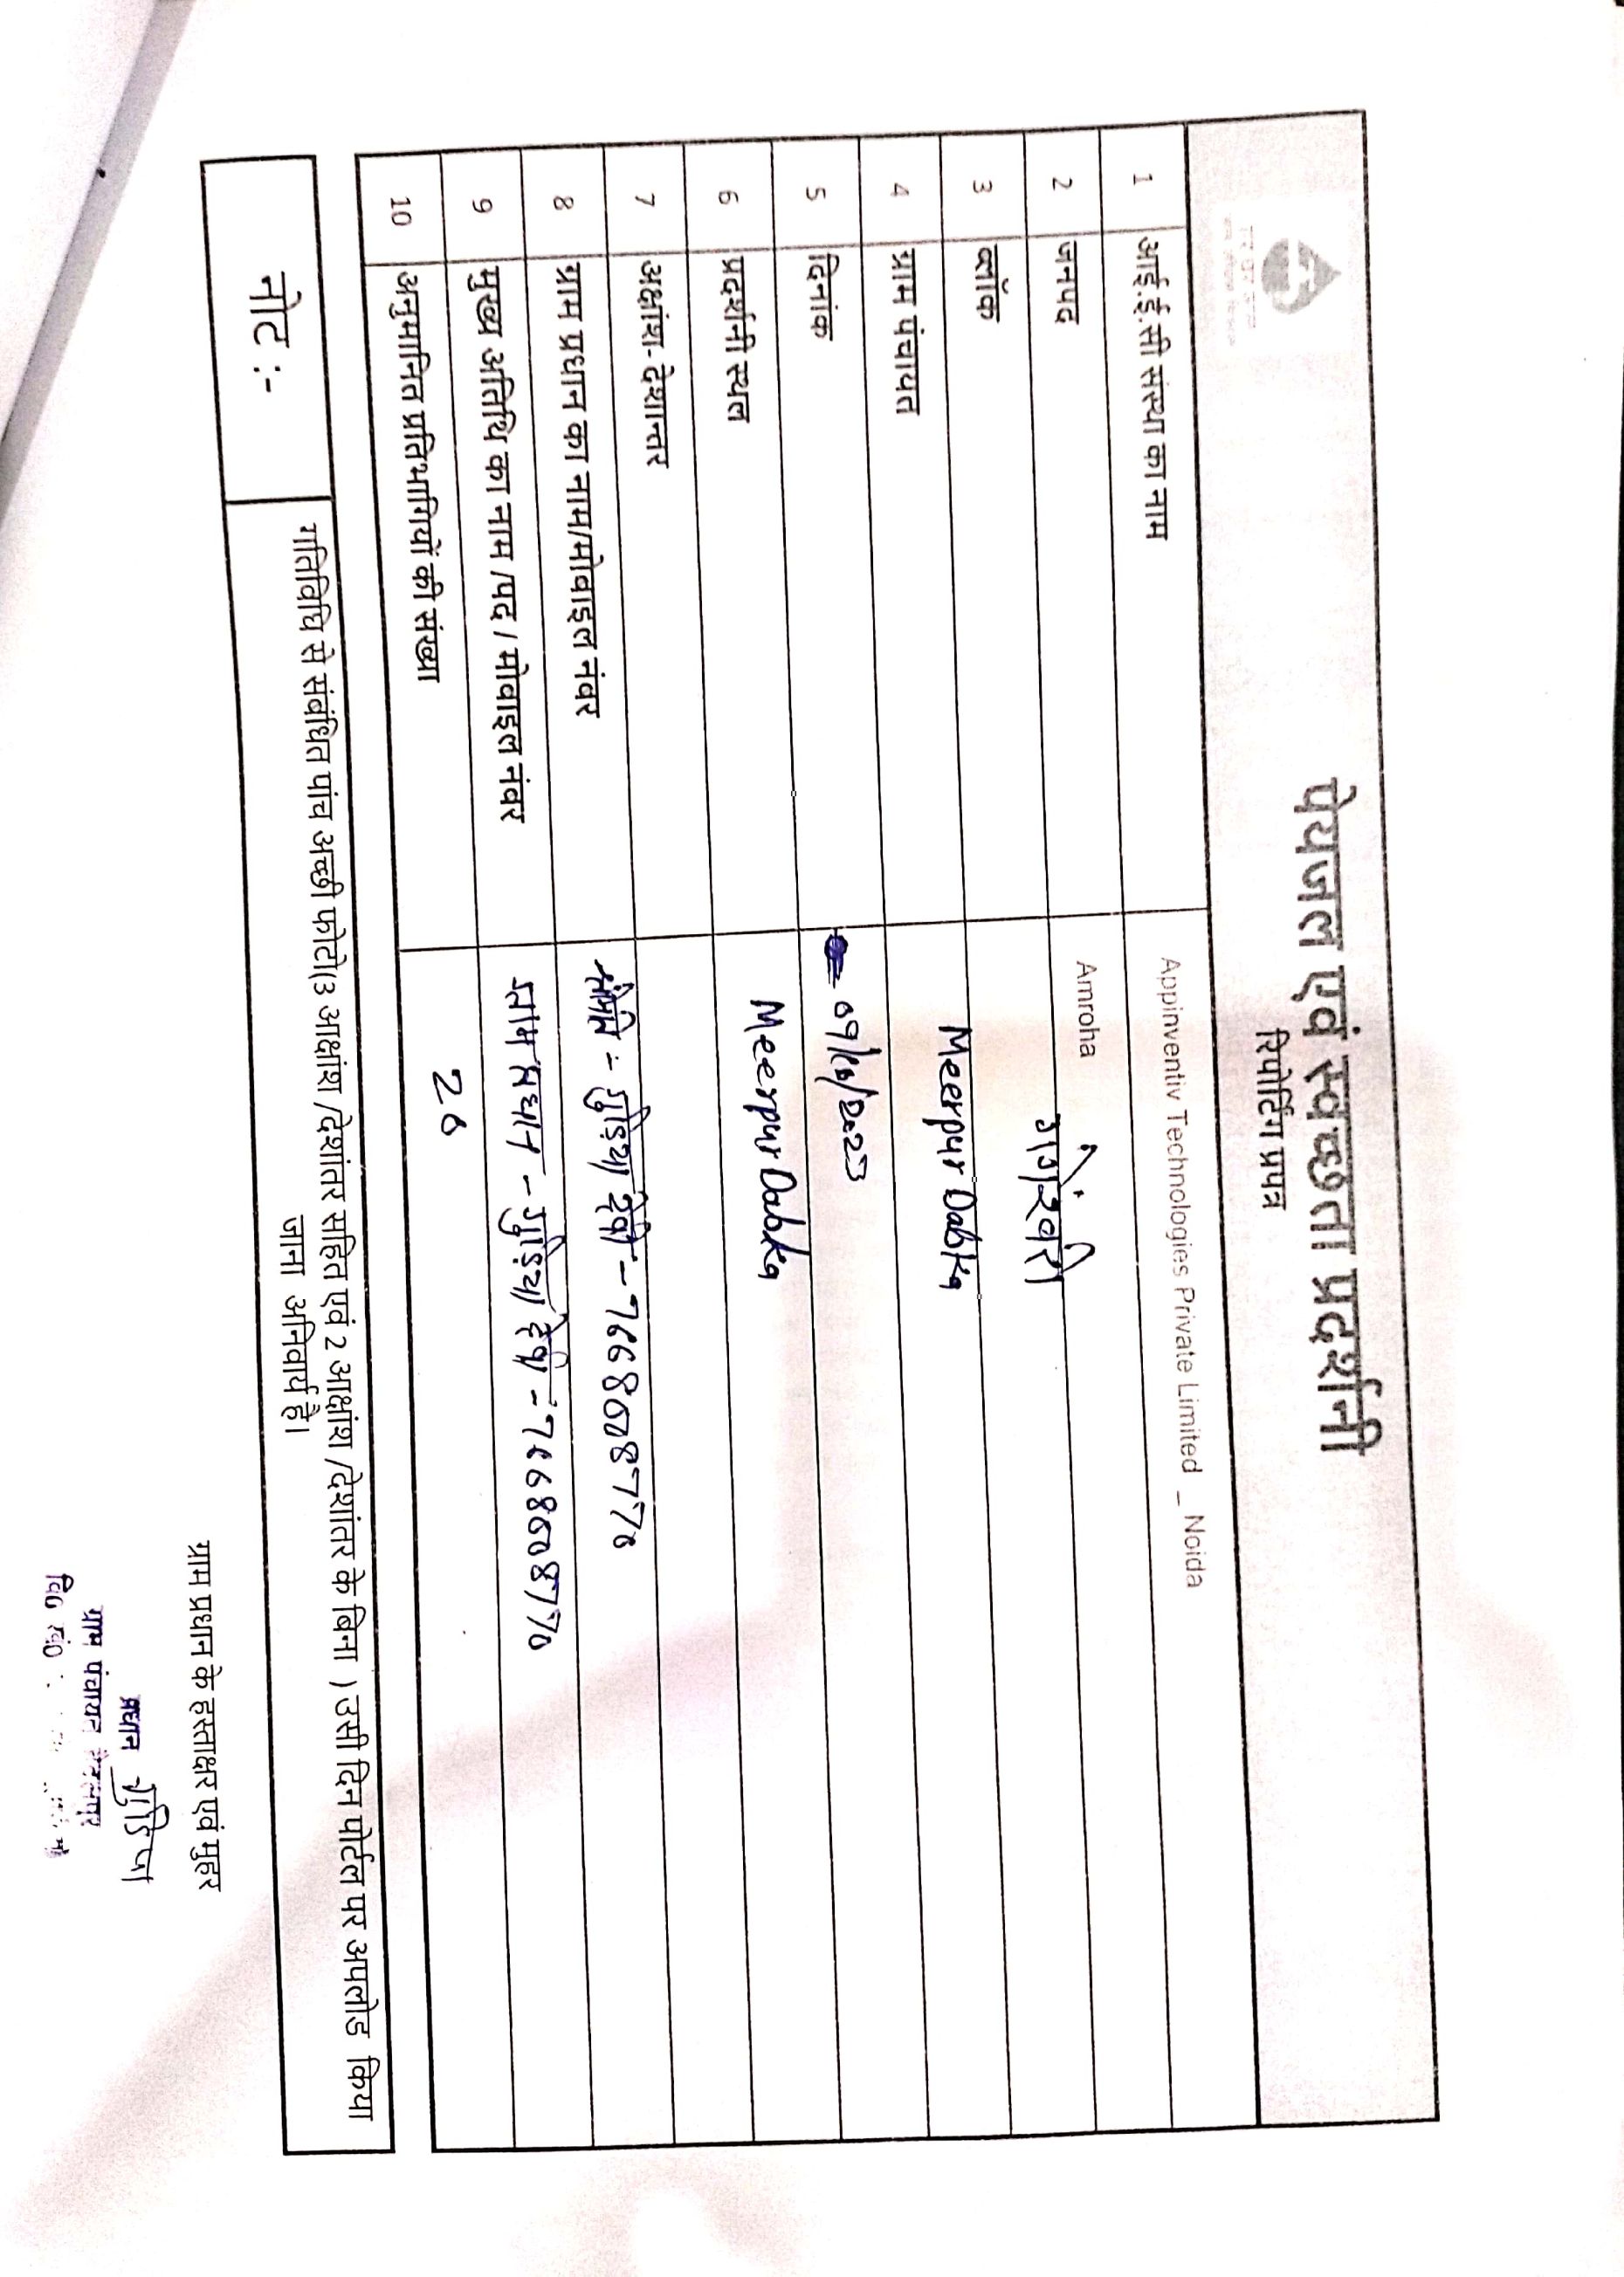 पेयजल एवं स्वच्छता प्रदर्शनी
रिपोर्टिंग प्रपत्र
1 आई.ई.सी संस्था का नाम Appinventiv Technologies Private Limited _ Noida
2 जनपद Amroha
3 ब्लॉक गंगेश्वरी
4 ग्राम पंचायत Meerpur Dabka
5 दिनांक 09/10/2023
6 प्रदर्शनी स्थल Meerpur Dabka
7 अक्षांश- देशान्तर
8 ग्राम प्रधान का नाम/मोबाइल नंबर श्रीमति :- गुड़िया देवी - 7668008770
9 मुख्य अतिथि का नाम /पद / मोबाइल नंबर ग्राम प्रधान - गुड़िया देवी - 7668008770
10 अनुमानित प्रतिभागियों की संख्या 20
नोट :-
गतिविधि से संबंधित पांच अच्छी फोटो(3 आक्षांश /देशांतर सहित एवं 2 आक्षांश /देशांतर के बिना ) उसी दिन पोर्टल पर अपलोड किया
जाना अनिवार्य है।
ग्राम प्रधान के हस्ताक्षर एवं मुहर
प्रधान गुड़िया
ग्राम पंचायत
वि0 खं0